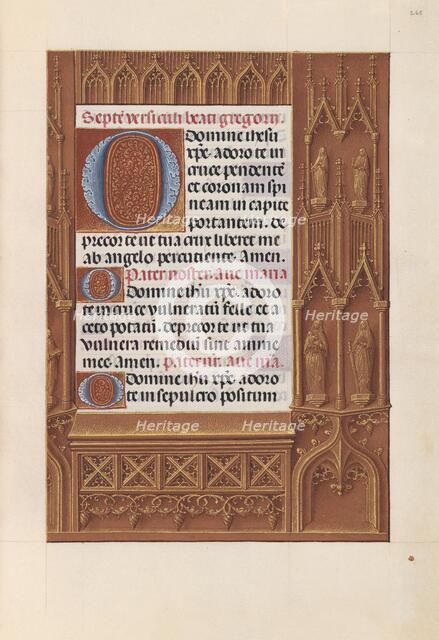 265
Septē versiculi beati gregorii.
O Domine ihesu
xp̄e. adoro te in
cruce pendentē
et coronam spi
neam in capite
portantem. de
precor te ut tua crux liberet me
ab angelo percutiente. Amen.
Pater noster. aue maria
O Domine ihū xp̄e. adoro
te in cruce vulneratū felle et a
ceto potatū. deprecor te ut tua
vulnera remediū sint anime
mee. Amen. pater nr̄. aue mīa.
O Domine ihū xp̄e. adoro
te in sepulcro positum
Heritage Heritage
Heritage Heritage
Heritage Heritage